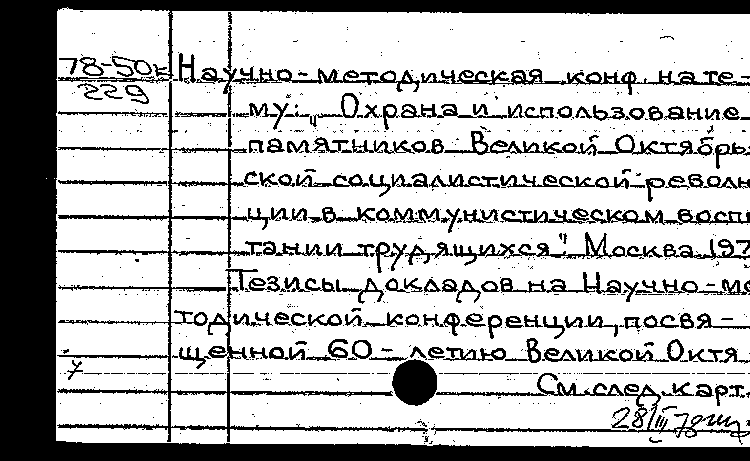 78-50к Научно-методическая конф. на те-
229
му: „Охрана и использование
памятников Великой Октябрь-
ской социалистической револю
ции в коммунистическом воспи
тании трудящихся". Москва 197
Тезисы докладов на Научно-ме
тодической конференции, посвя-
щенной 60-летию Великой Октя
См. след. карт.
28/III 78